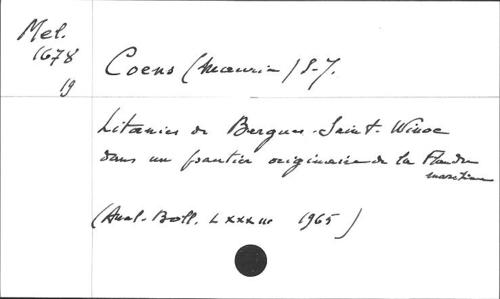 Mel.
1678
19
Coens (Maurice) S.J.
Litanies de Bergues-Saint-Winoc
dans un psautier originaire de la Flandre
maritime
(Anal. Boll. LXXXIII 1965)